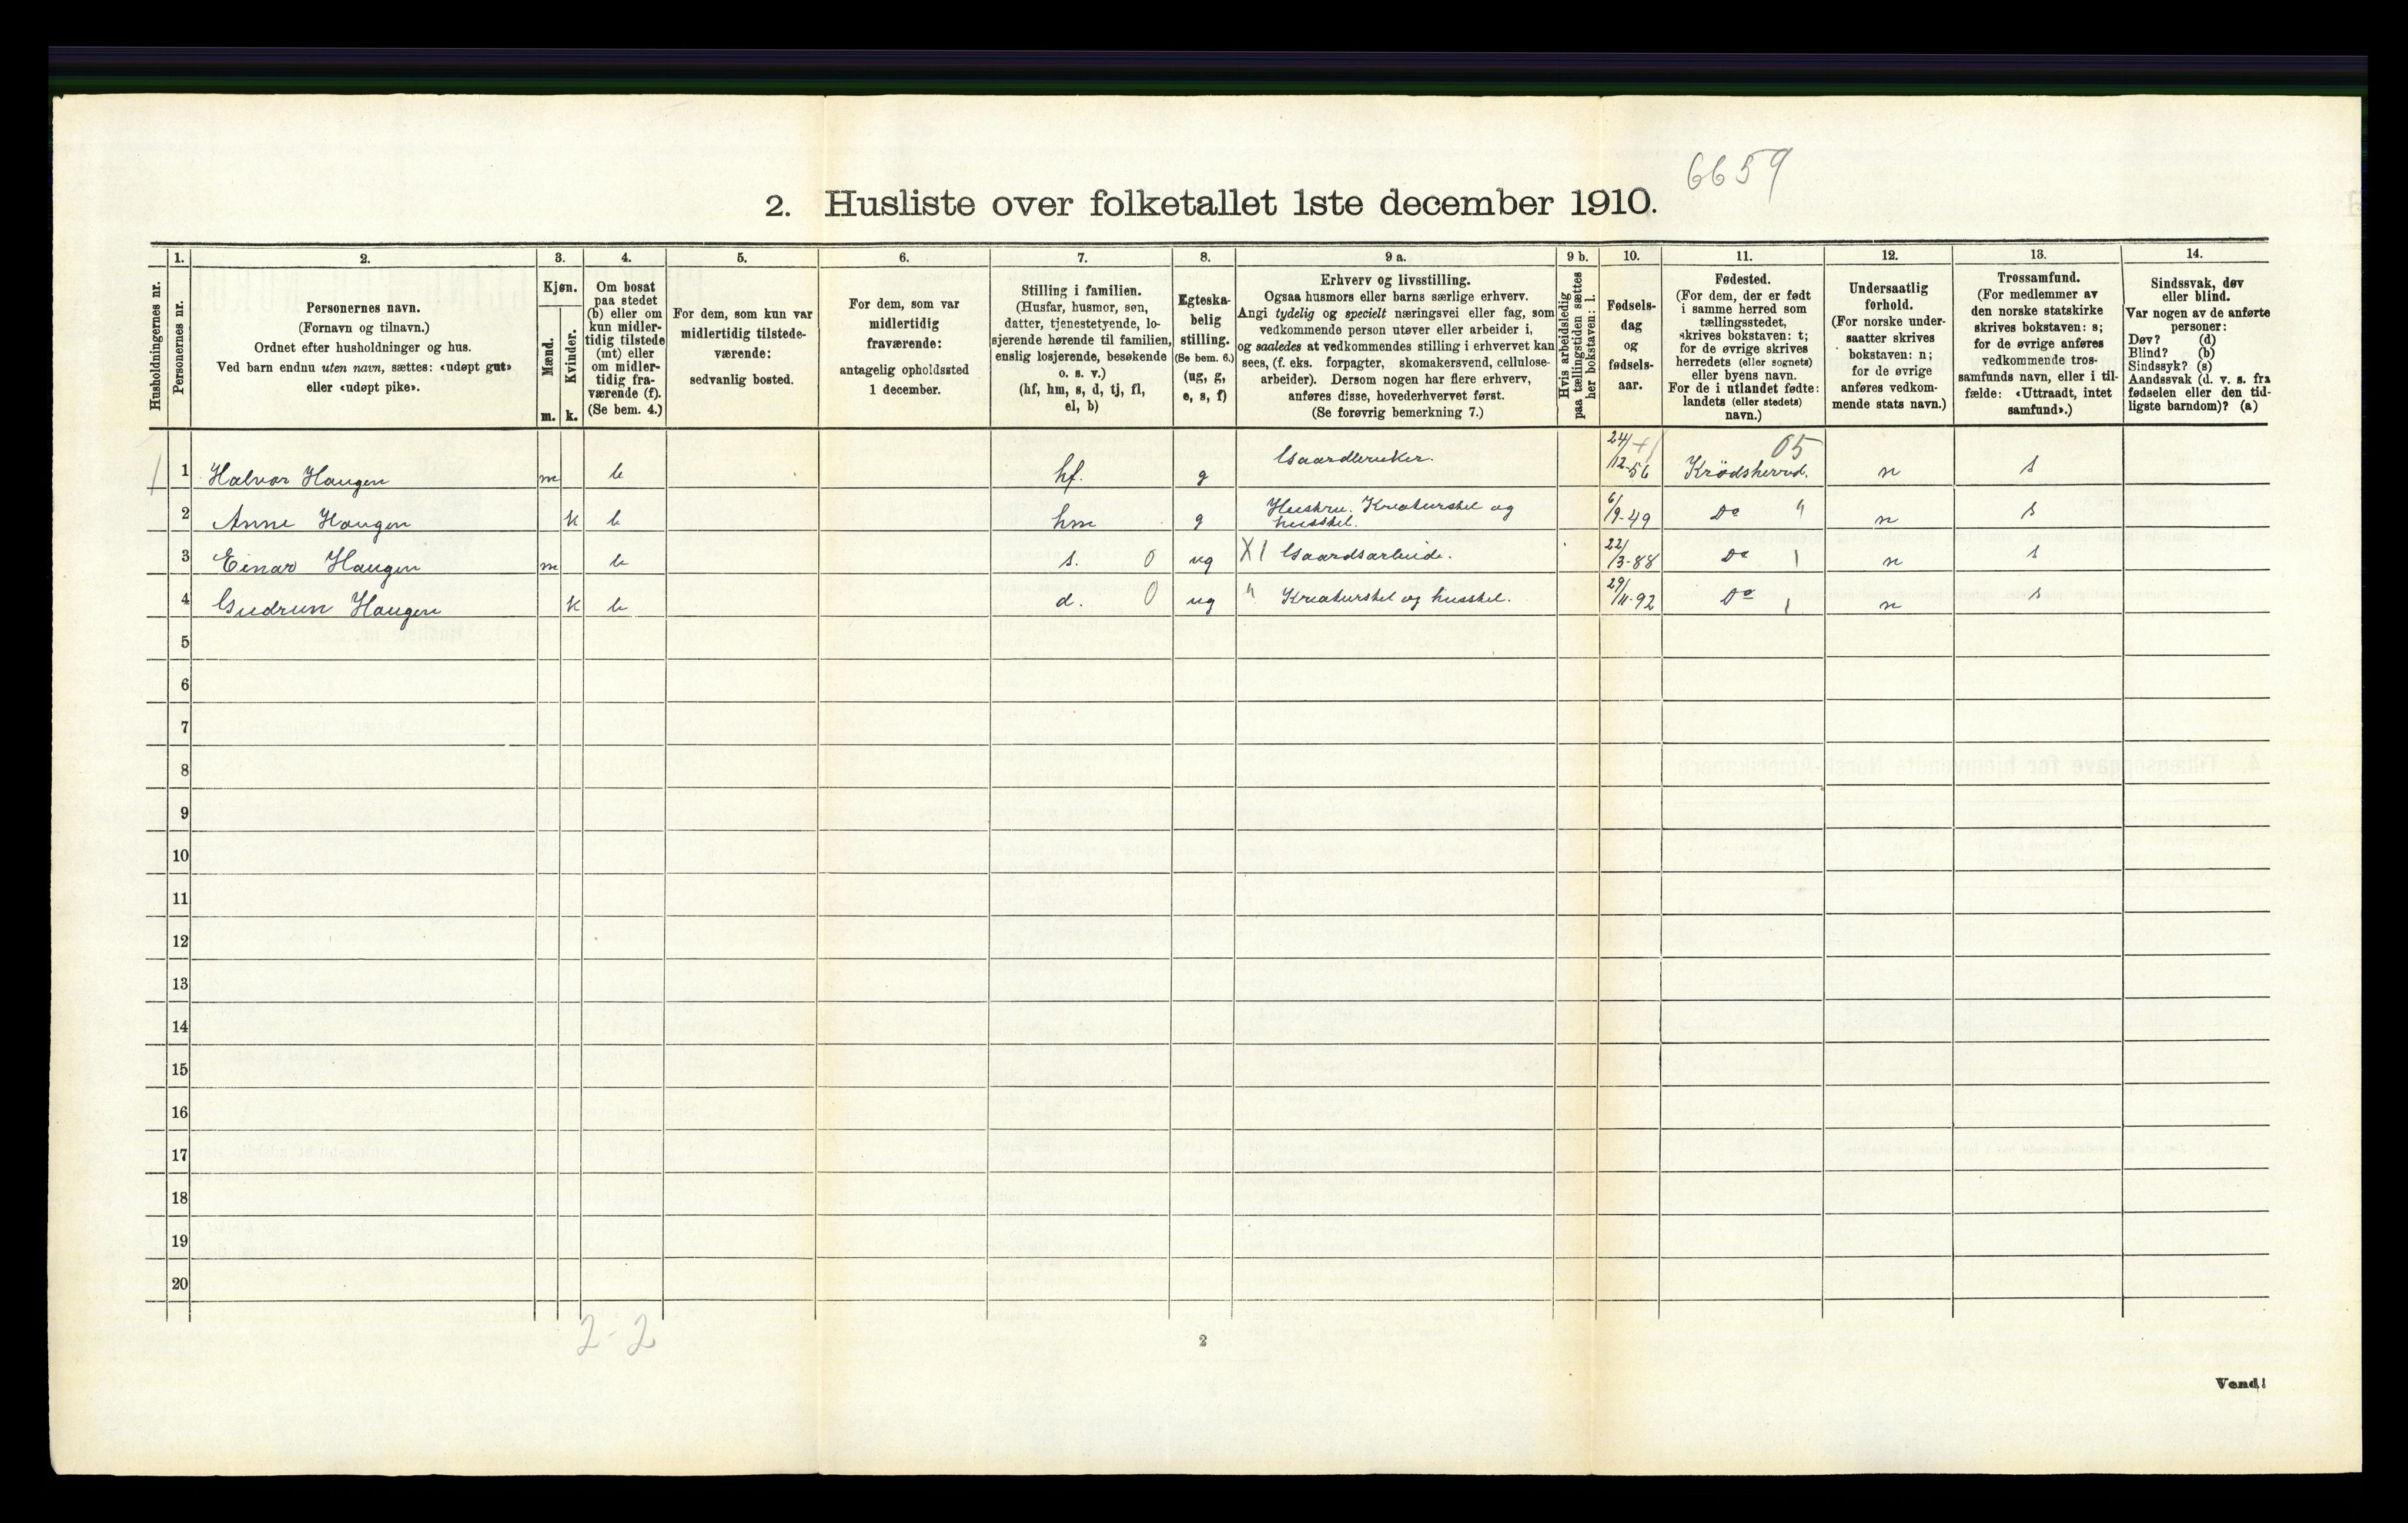 6659
2. Husliste over folketallet 1ste december 1910.
1. 2. 3. 4. 5. 6. 7. 8. 9 a. 9 b. 10. 11. 12. 13. 14.
Husholdningernes nr.
Personernes nr.
Personernes navn.
(Fornavn og tilnavn.)
Ordnet efter husholdninger og hus.
Ved barn endnu uten navn, sættes: «udøpt gut»
eller «udøpt pike».
Kjøn.
Mænd.
m.
Kvinder.
k.
Om bosat
paa stedet
(b) eller om
kun midler-
tidig tilstede
(mt) eller
om midler-
tidig fra-
værende (f).
(Se bem. 4.)
For dem, som kun var
midlertidig tilstede-
værende:
sedvanlig bosted.
For dem, som var
midlertidig
fraværende:
antagelig opholdssted
1 december.
Stilling i familien.
(Husfar, husmor, søn,
datter, tjenestetyende, lo-
sjerende hørende til familien,
enslig losjerende, besøkende
o. s. v.)
(hf, hm, s, d, tj, fl,
el, b)
Egteska-
belig
stilling.
(Se bem. 6.)
(ug, g,
e, s, f)
Erhverv og livsstilling.
Ogsaa husmors eller barns særlige erhverv.
Angi tydelig og specielt næringsvei eller fag, som
vedkommende person utøver eller arbeider i,
og saaledes at vedkommendes stilling i erhvervet kan
sees, (f. eks. forpagter, skomakersvend, cellulose-
arbeider). Dersom nogen har flere erhverv,
anføres disse, hovederhvervet først.
(Se forøvrig bemerkning 7.)
Hvis arbeidsledig
paa tællingstiden sættes
her bokstaven: l.
Fødsels-
dag
og
fødsels-
aar.
Fødested.
(For dem, der er født
i samme herred som
tællingsstedet,
skrives bokstaven: t;
for de øvrige skrives
herredets (eller sognets)
eller byens navn.
For de i utlandet fødte:
landets (eller stedets)
navn.)
Undersaatlig
forhold.
(For norske under-
saatter skrives
bokstaven: n;
for de øvrige
anføres vedkom-
mende stats navn.)
Trossamfund.
(For medlemmer av
den norske statskirke
skrives bokstaven: s;
for de øvrige anføres
vedkommende tros-
samfunds navn, eller i til-
fælde: «Uttraadt, intet
samfund».)
Sindssvak, døv
eller blind.
Var nogen av de anførte
personer:
Døv? (d)
Blind? (b)
Sindssyk? (s)
Aandssvak (d. v. s. fra
fødselen eller den tid-
ligste barndom)? (a)
1 1 Halvor Haugen m b hf. g Gaardbruker. 24/12-56 Krödsherred. 05 n s
2 Anne Haugen k b hm g Hustru. Kreaturstel og husstel. 6/9-49 Do " n s
3 Einar Haugen m b s. 0 ug X1 Gaardsarbeide. 22/3-88 Do 1 n s
4 Gudrun Haugen k b d. 0 ug " Kreaturstel og husstel. 29/11-92 Do 1 n s
5
6
7
8
9
10
11
12
13
14
15
16
17
18
19
20
2-2
2
Vend!